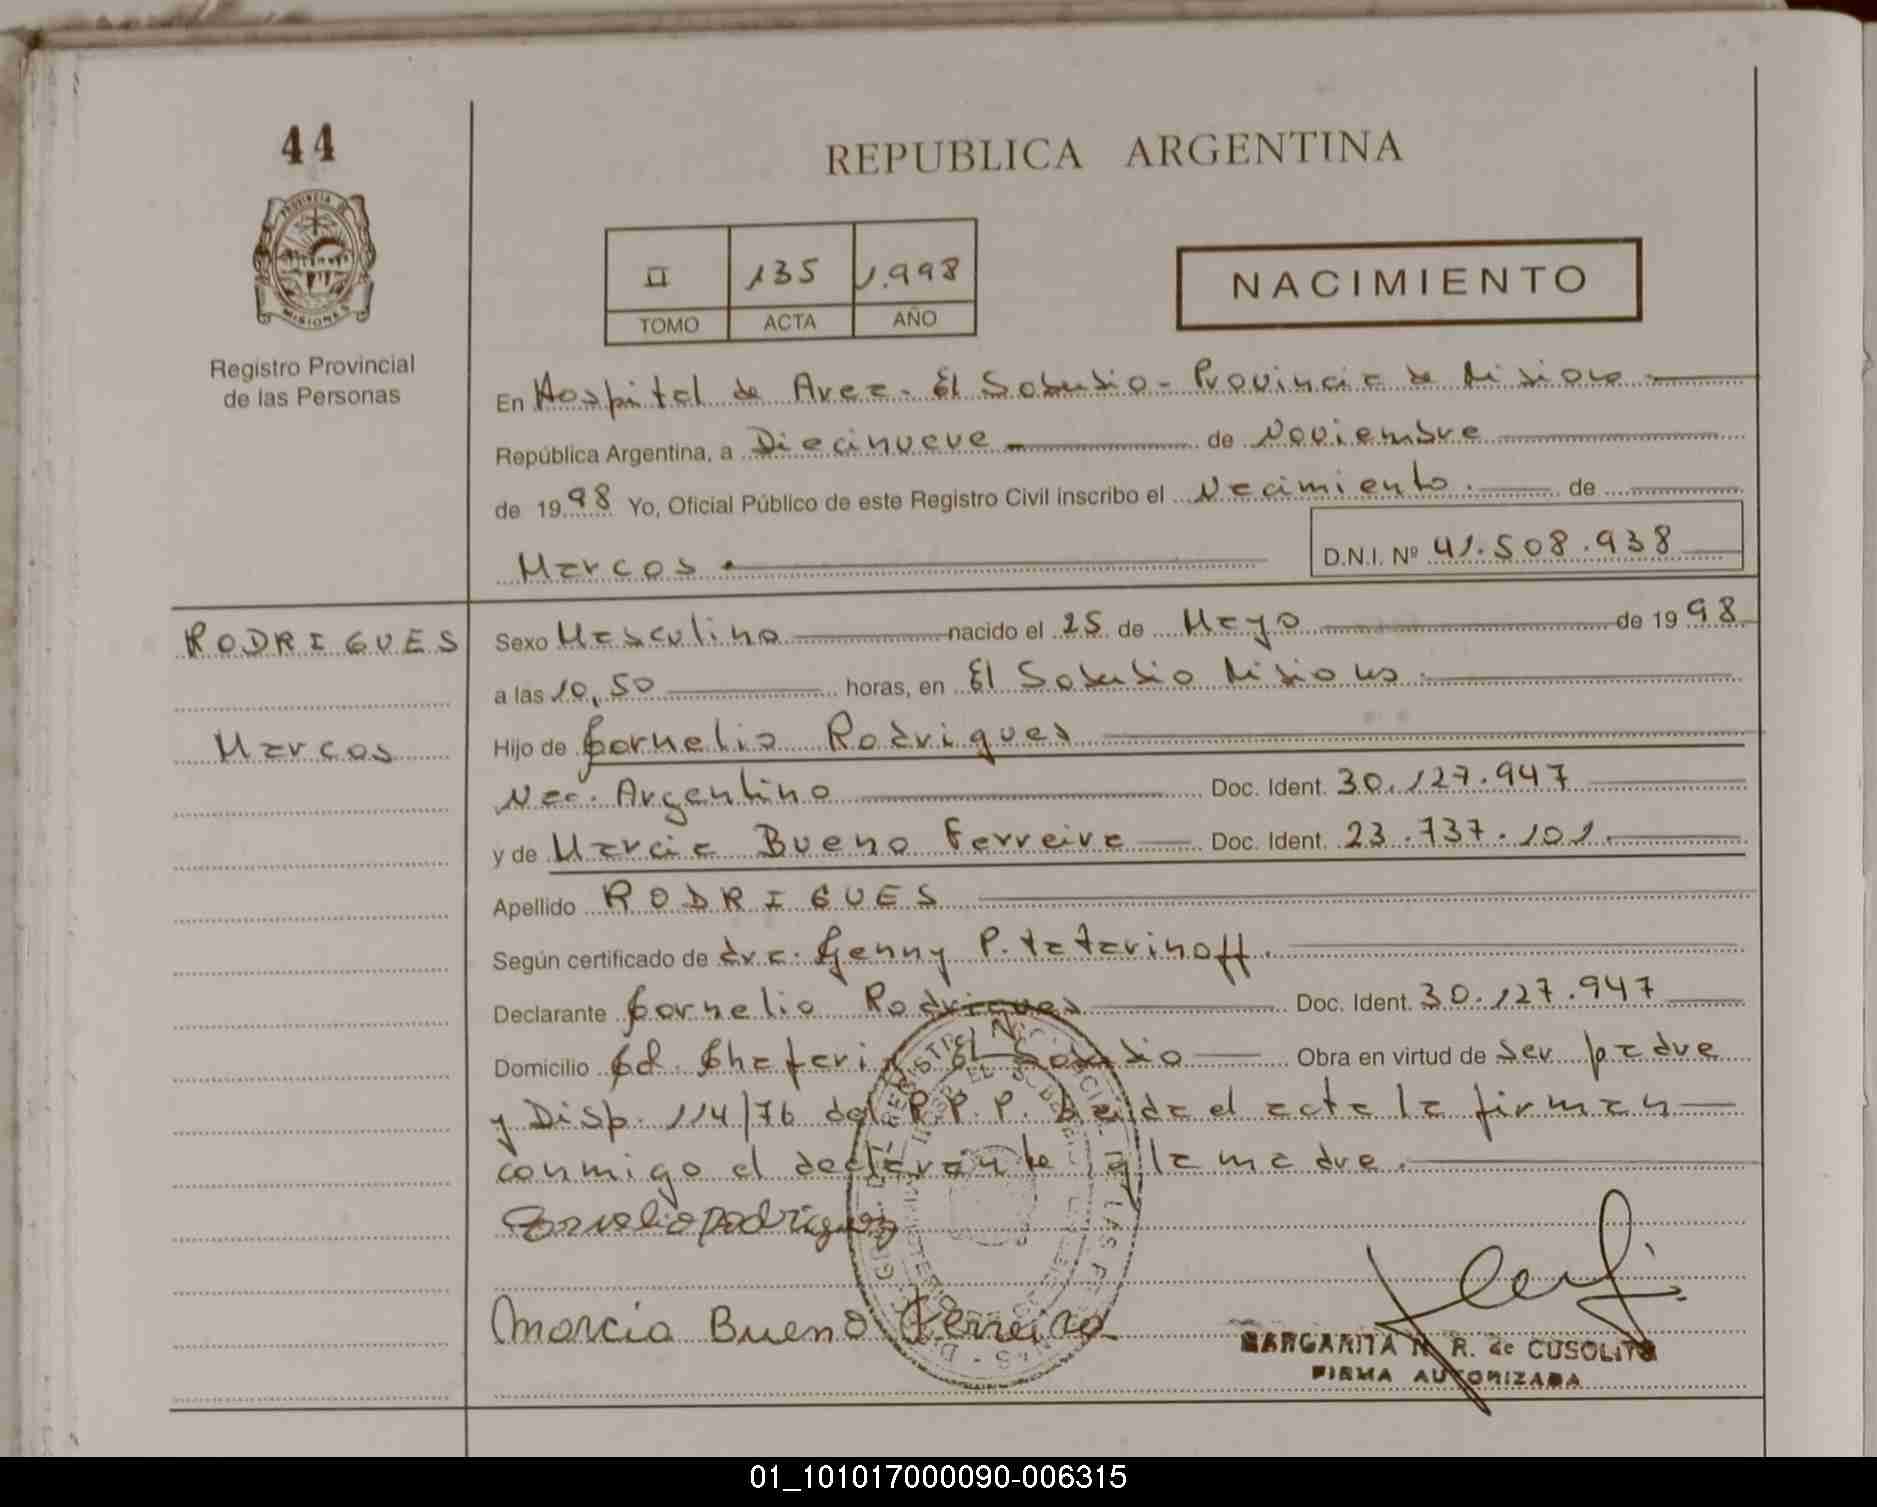 44
REPUBLICA ARGENTINA
PROVINCIA DE
MISIONES
Registro Provincial
de las Personas
II 135 1.998
TOMO ACTA AÑO
NACIMIENTO
En Hospital de Area - El Soberbio - Provincia de Misiones
República Argentina, a Diecinueve de Noviembre
de 1998 Yo, Oficial Público de este Registro Civil inscribo el Nacimiento. de
Marcos D.N.I. Nº 41.508.938
RODRIGUES
Marcos
Sexo Masculino nacido el 25 de Mayo de 1998
a las 10,50 horas, en El Soberbio Misiones.
Hijo de Cornelio Rodrigues
Nac. Argentino Doc. Ident. 30.127.947
y de Marcia Bueno Ferreira Doc. Ident. 23.737.101.
Apellido RODRIGUES
Según certificado de dra. Genny P. Tatarinoff.
Declarante Cornelio Rodrigues Doc. Ident. 30.127.947
Domicilio Cd. Chafariz El Soberbio Obra en virtud de ser padre
y Disp. 114/76 del R.P.P. Leida el acta la firman
conmigo el declarante y la madre.
Cornelio Rodriguez
Marcia Bueno Ferreira
MARGARITA R. de CUSOLITO
FIRMA AUTORIZADA
01_101017000090-006315